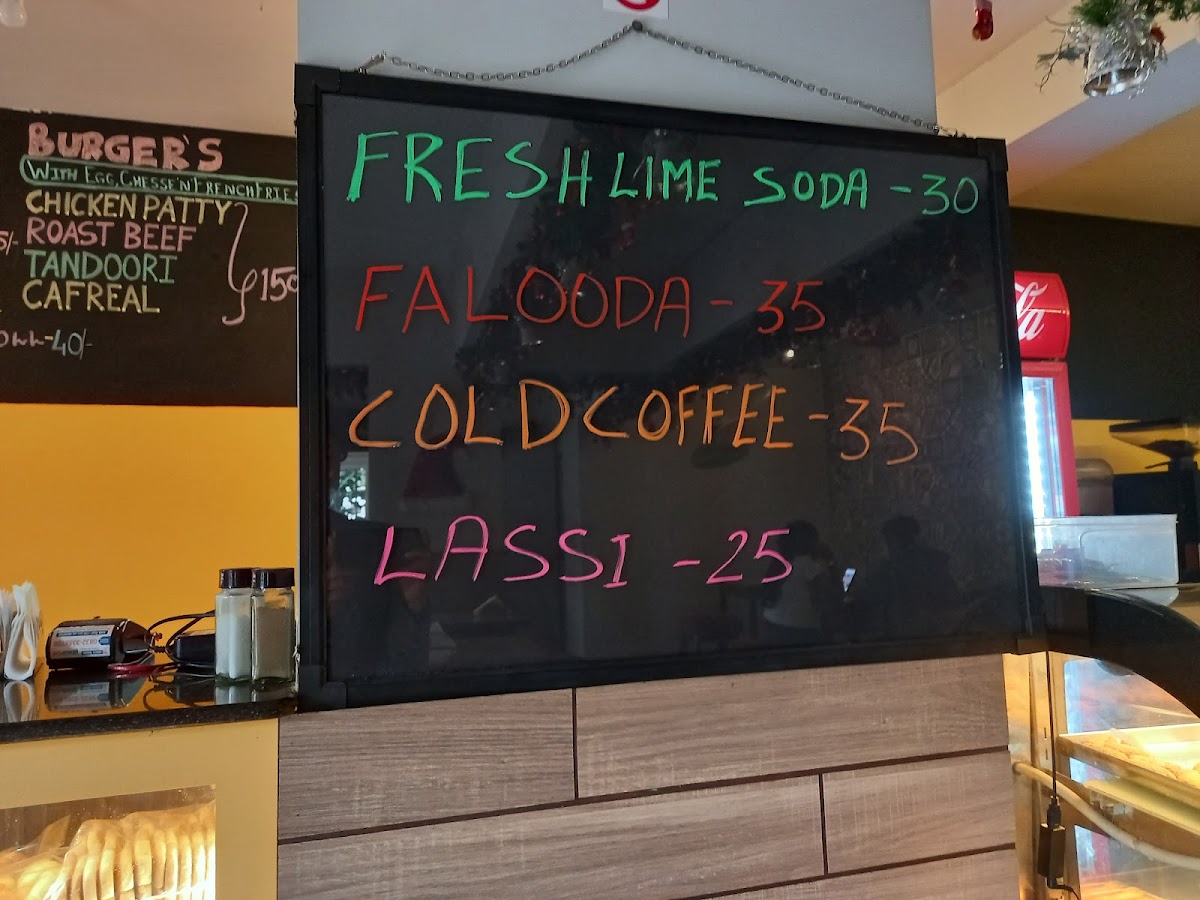 BURGER'S
WITH EGG, CHESSE 'N' FRENCH FRIES
CHICKEN PATTY
ROAST BEEF
TANDOORI
CAFREAL
150
-40/-
FRESH LIME SODA - 30
FALOODA - 35
COLD COFFEE - 35
LASSI - 25